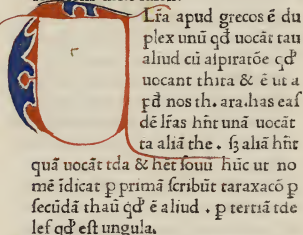 Lr̃a apud grecos ē du
plex unū qđ uocāt tau
aliud cū alpiratōe qđ
uocant thita & ē ut a
pđ nos th. ara.has eaſ
dē lr̃as hn̄t unā uocāt
ta aliā the . ſʒ aliā hn̄t
quā uocāt tda & het ſouu hūc ut no
mē īdicat p primā ſcribūt taraxacō p
ſecūdā thaū qđ ē aliud . p tertiā tde
leſ qđ eſt ungula.